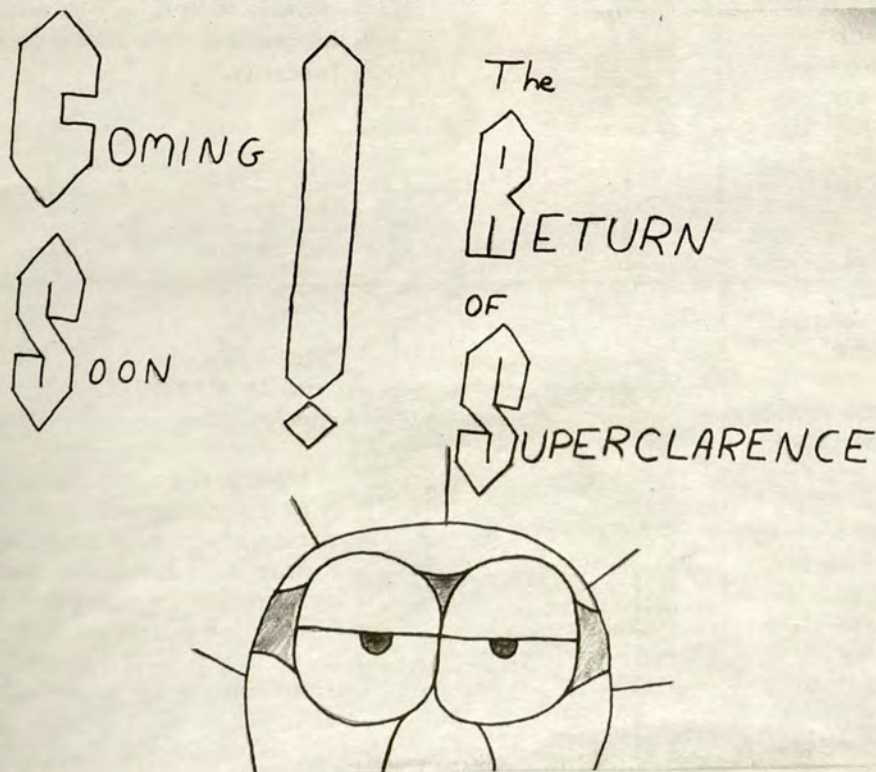 COMING
SOON
!
The
RETURN
OF
SUPERCLARENCE